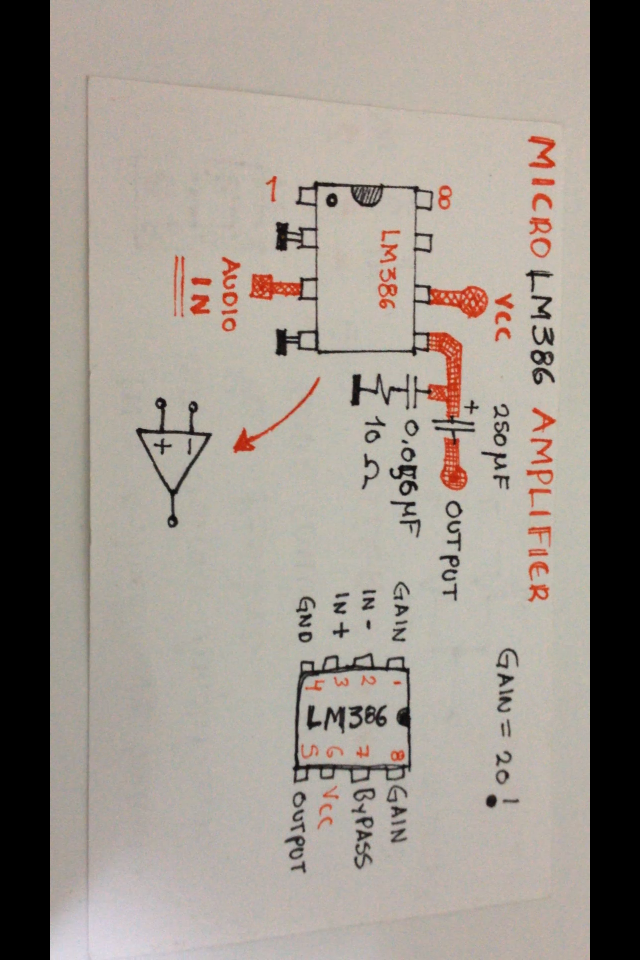 MICRO LM386 AMPLIFIER
GAIN = 20!
VCC
250µF
+
OUTPUT
8
1
LM386
AUDIO
IN
10 Ω
- +
GAIN
IN -
IN +
GND
1 2 3 4
LM386
8 7 6 5
GAIN
BYPASS
VCC
OUTPUT